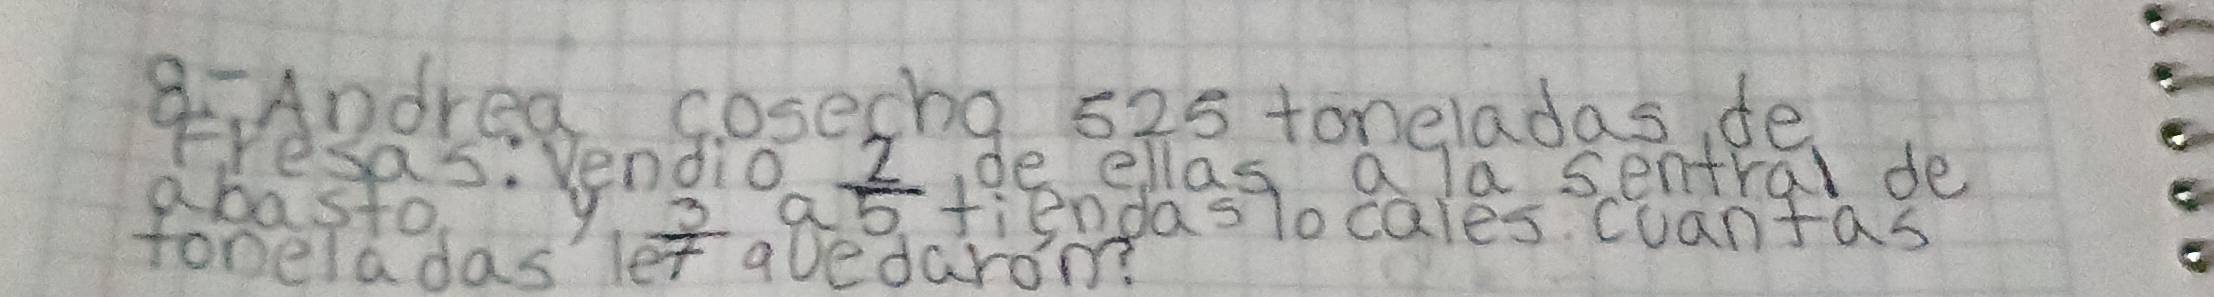 8-Andrea cosecho 525 toneladas de
Fresas. Vendio 2/5 de ellas a la sentral de
abasto y 3/7 a tiendas locales. cuantas
toneladas le quedaron?